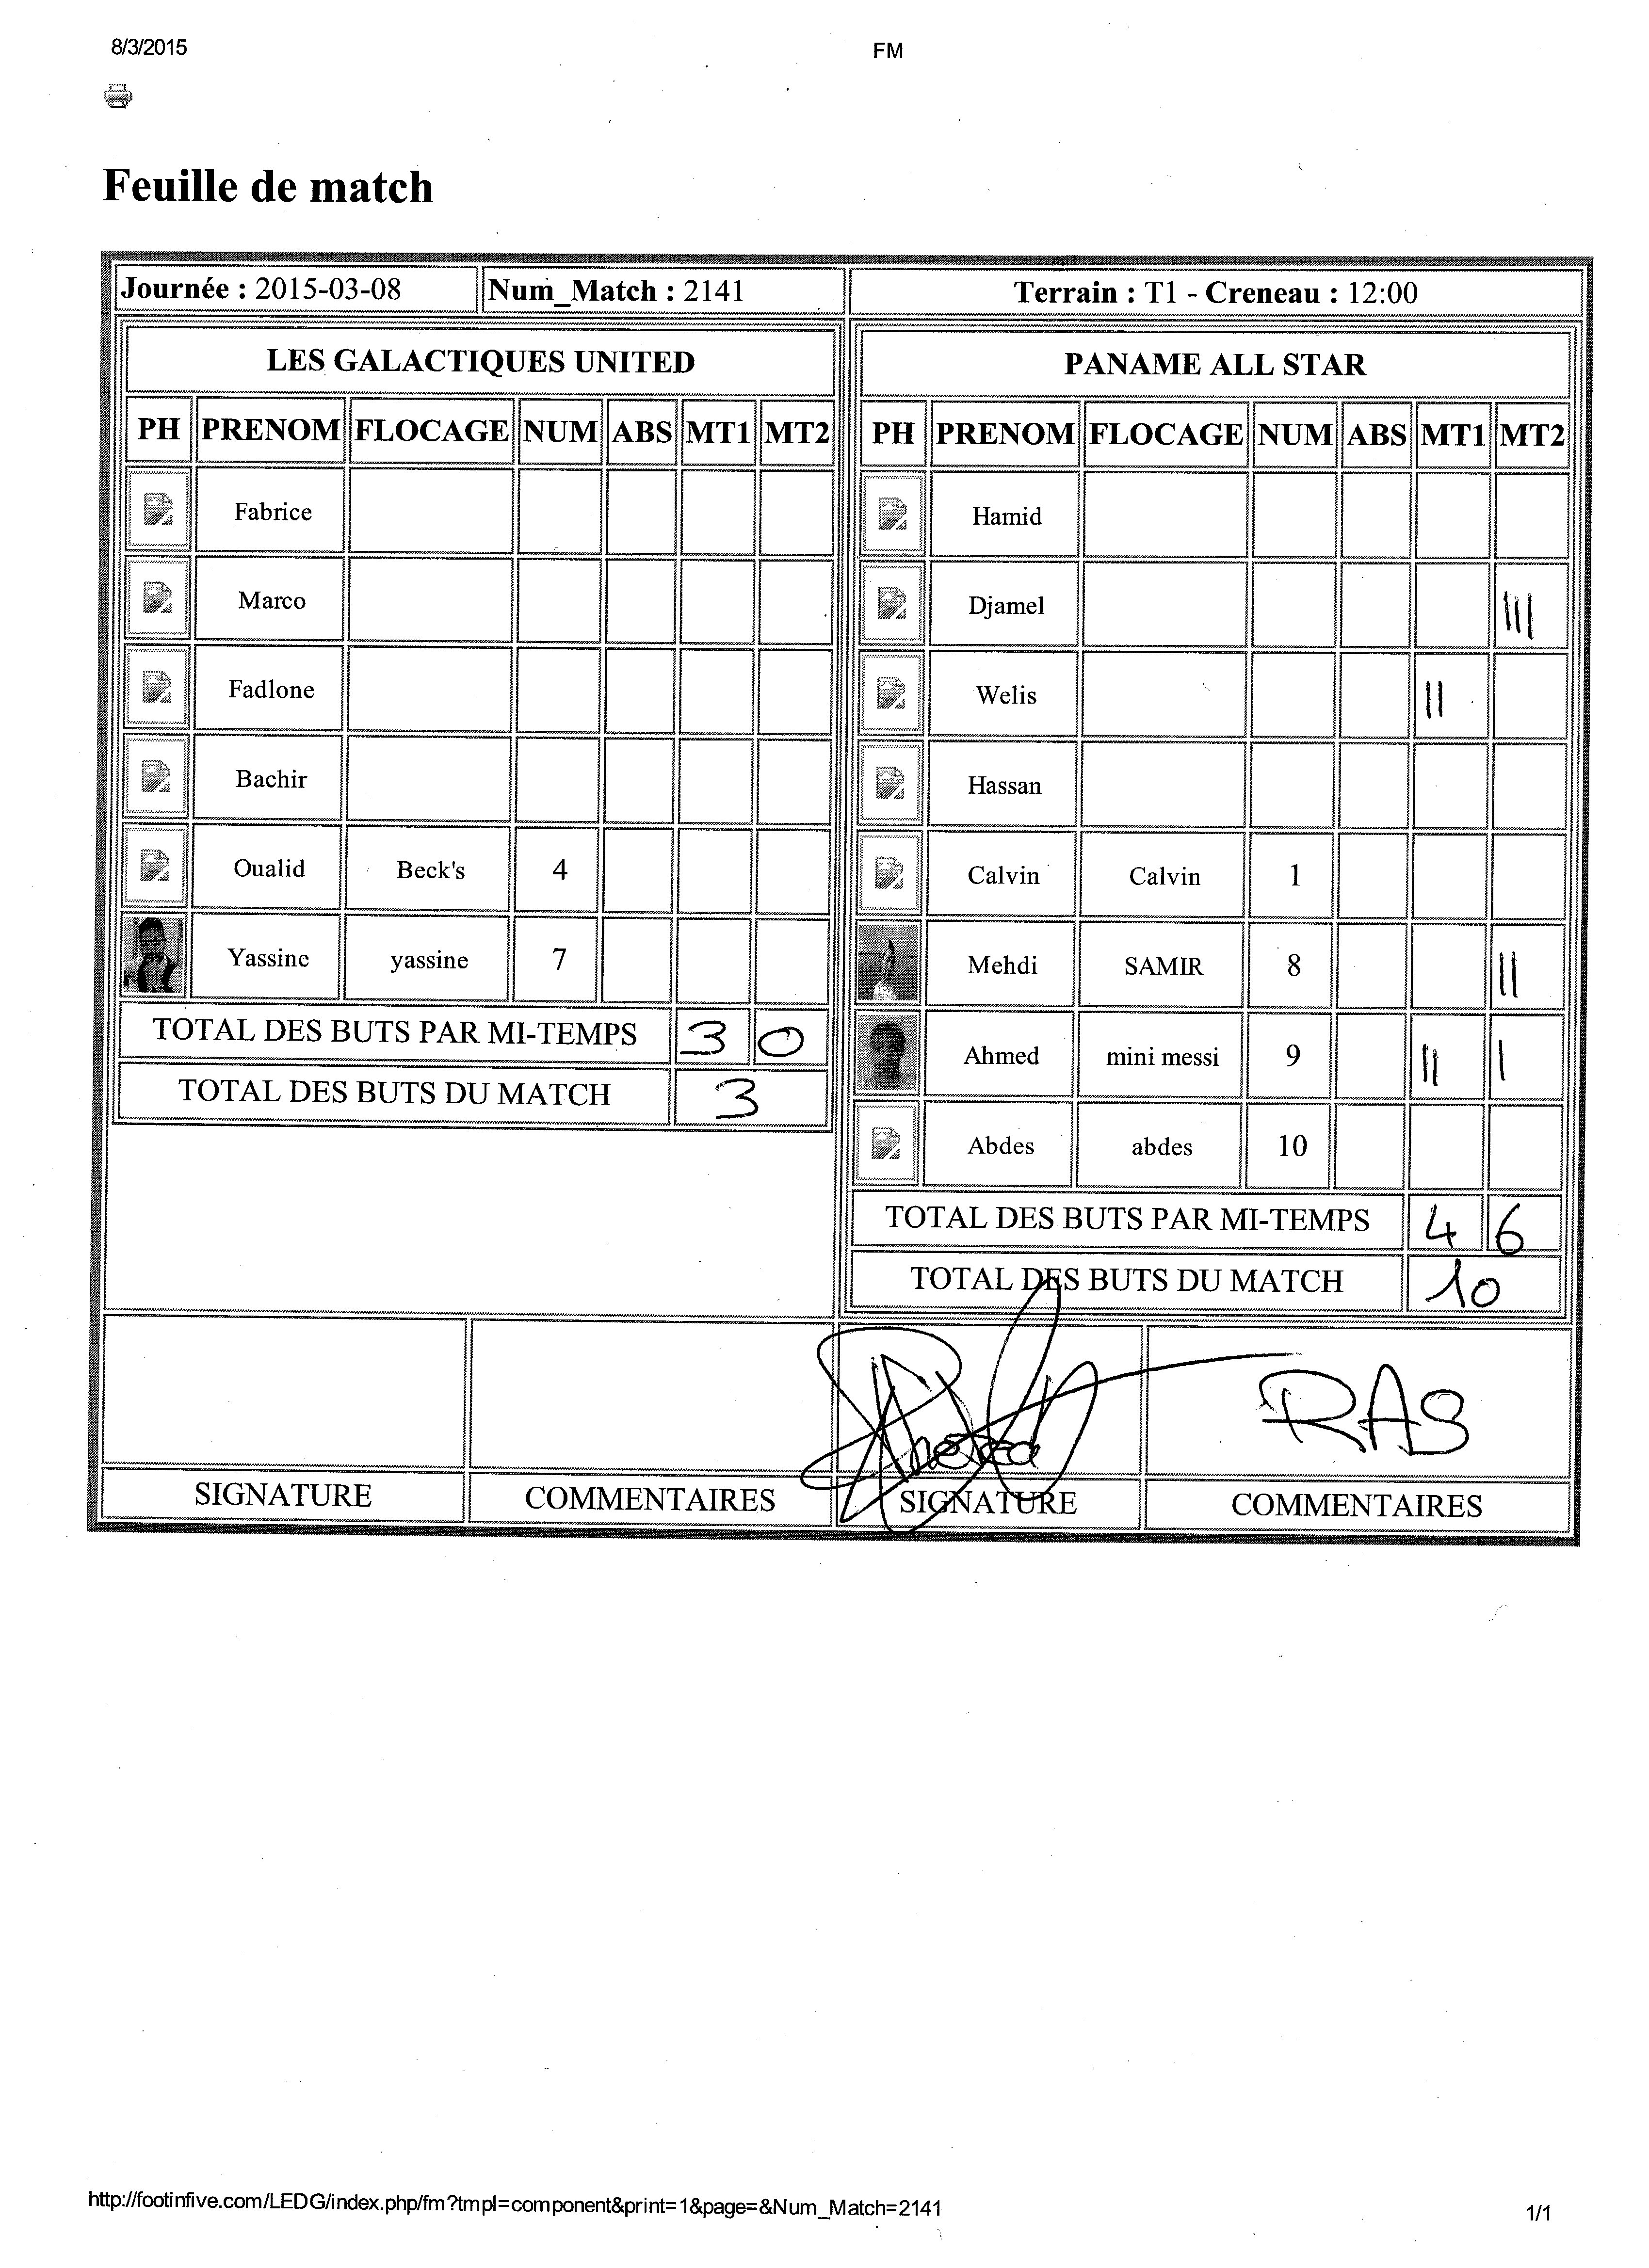 8/3/2015 FM
Feuille de match
Journée : 2015-03-08 Num_Match : 2141 Terrain : T1 - Creneau : 12:00
LES GALACTIQUES UNITED
PH PRENOM FLOCAGE NUM ABS MT1 MT2
Fabrice
Marco
Fadlone
Bachir
Oualid Beck's 4
Yassine yassine 7
TOTAL DES BUTS PAR MI-TEMPS 3 0
TOTAL DES BUTS DU MATCH 3
PANAME ALL STAR
PH PRENOM FLOCAGE NUM ABS MT1 MT2
Hamid
Djamel |||
Welis ||
Hassan
Calvin Calvin 1
Mehdi SAMIR 8 ||
Ahmed mini messi 9 || |
Abdes abdes 10
TOTAL DES BUTS PAR MI-TEMPS 4 6
TOTAL DES BUTS DU MATCH 10
RAS
SIGNATURE COMMENTAIRES SIGNATURE COMMENTAIRES
http://footinfive.com/LEDG/index.php/fm?tmpl=component&print=1&page=&Num_Match=2141 1/1